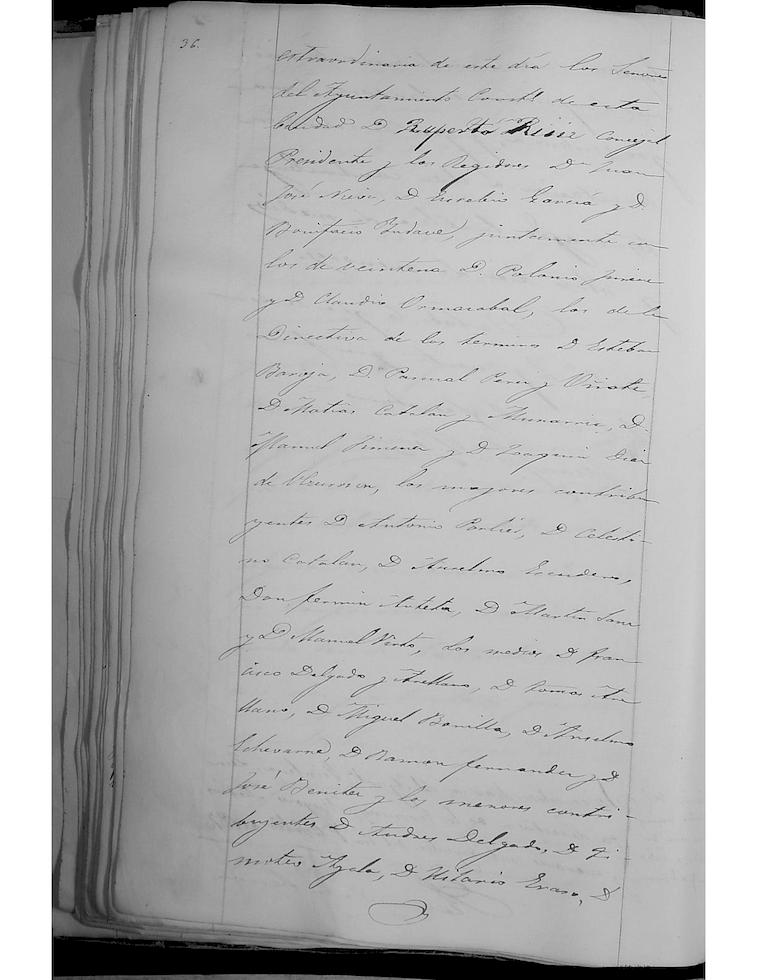 36.
extraordinaria de este día los Señores
del Ayuntamiento Constl. de esta
Ciudad D Ruperto Ruiz Concejal
Presidente y los Regidores Dn Juan
José Nieve, D Eusebio Garcia y D.
Bonifacio Yndave, juntamente con
los de veintena D. Polonio
y D Claudio Ormazabal, los de la
Directiva de los terminos D Esteban
Baroja, D. Pascual Perez y Oñate,
D Matias Catalan y Munarriz, D.
Manuel Ximenez y D Joaquin Diaz
de los mayores contribu
yentes D Antonio Portiés, D Celesti-
no Catalan, D Anselmo Escudero,
Don fermin Arteta, D Martin Sanz
y D Manuel Virto, los medios D fran-
cisco Delgado y Arellano, D tomas Are
llano, D Miguel Bonilla, D Anselmo
Echevarria, D Ramon fernandez y D
José Benitez y los menores contri-
buyentes D Andres Delgado, D Ti-
moteo Ayala, D Hilario Eraso, D